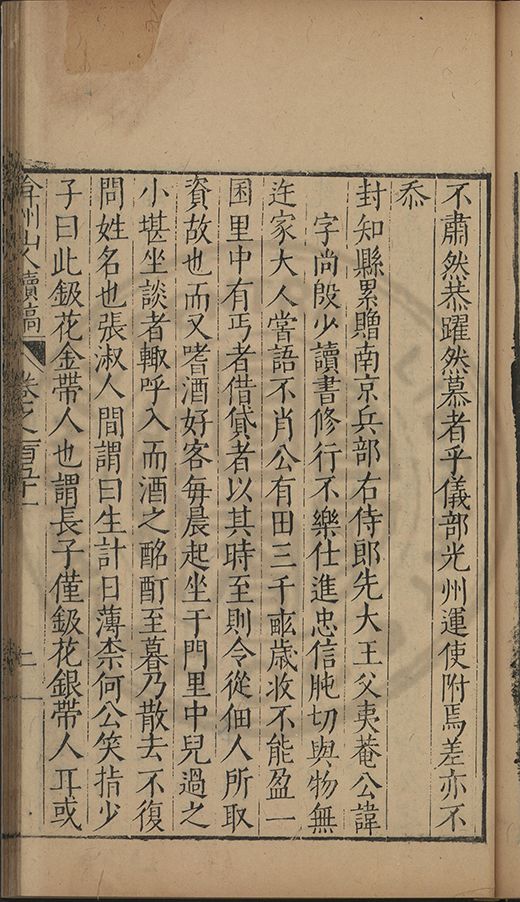 不肅然恭躍然慕者乎儀部光州運使附焉差亦不
忝
封知縣累贈南京兵部右侍郎先大王父夷菴公諱
字尚殷少讀書修行不樂仕進忠信肫切與物無
迕家大人嘗語不肖公有田三千畝歲收不能盈一
囷里中有丐者借貸者以其時至則令從佃人所取
資故也而又嗜酒好客每晨起坐于門里中兒過之
小堪坐談者輙呼入而酒之酩酊至暮乃散去不復
問姓名也張淑人間謂曰生計日薄柰何公笑指少
子曰此鈒花金帶人也謂長子僅鈒花銀帶人耳或
弇州山人續稿 卷之一百五十一